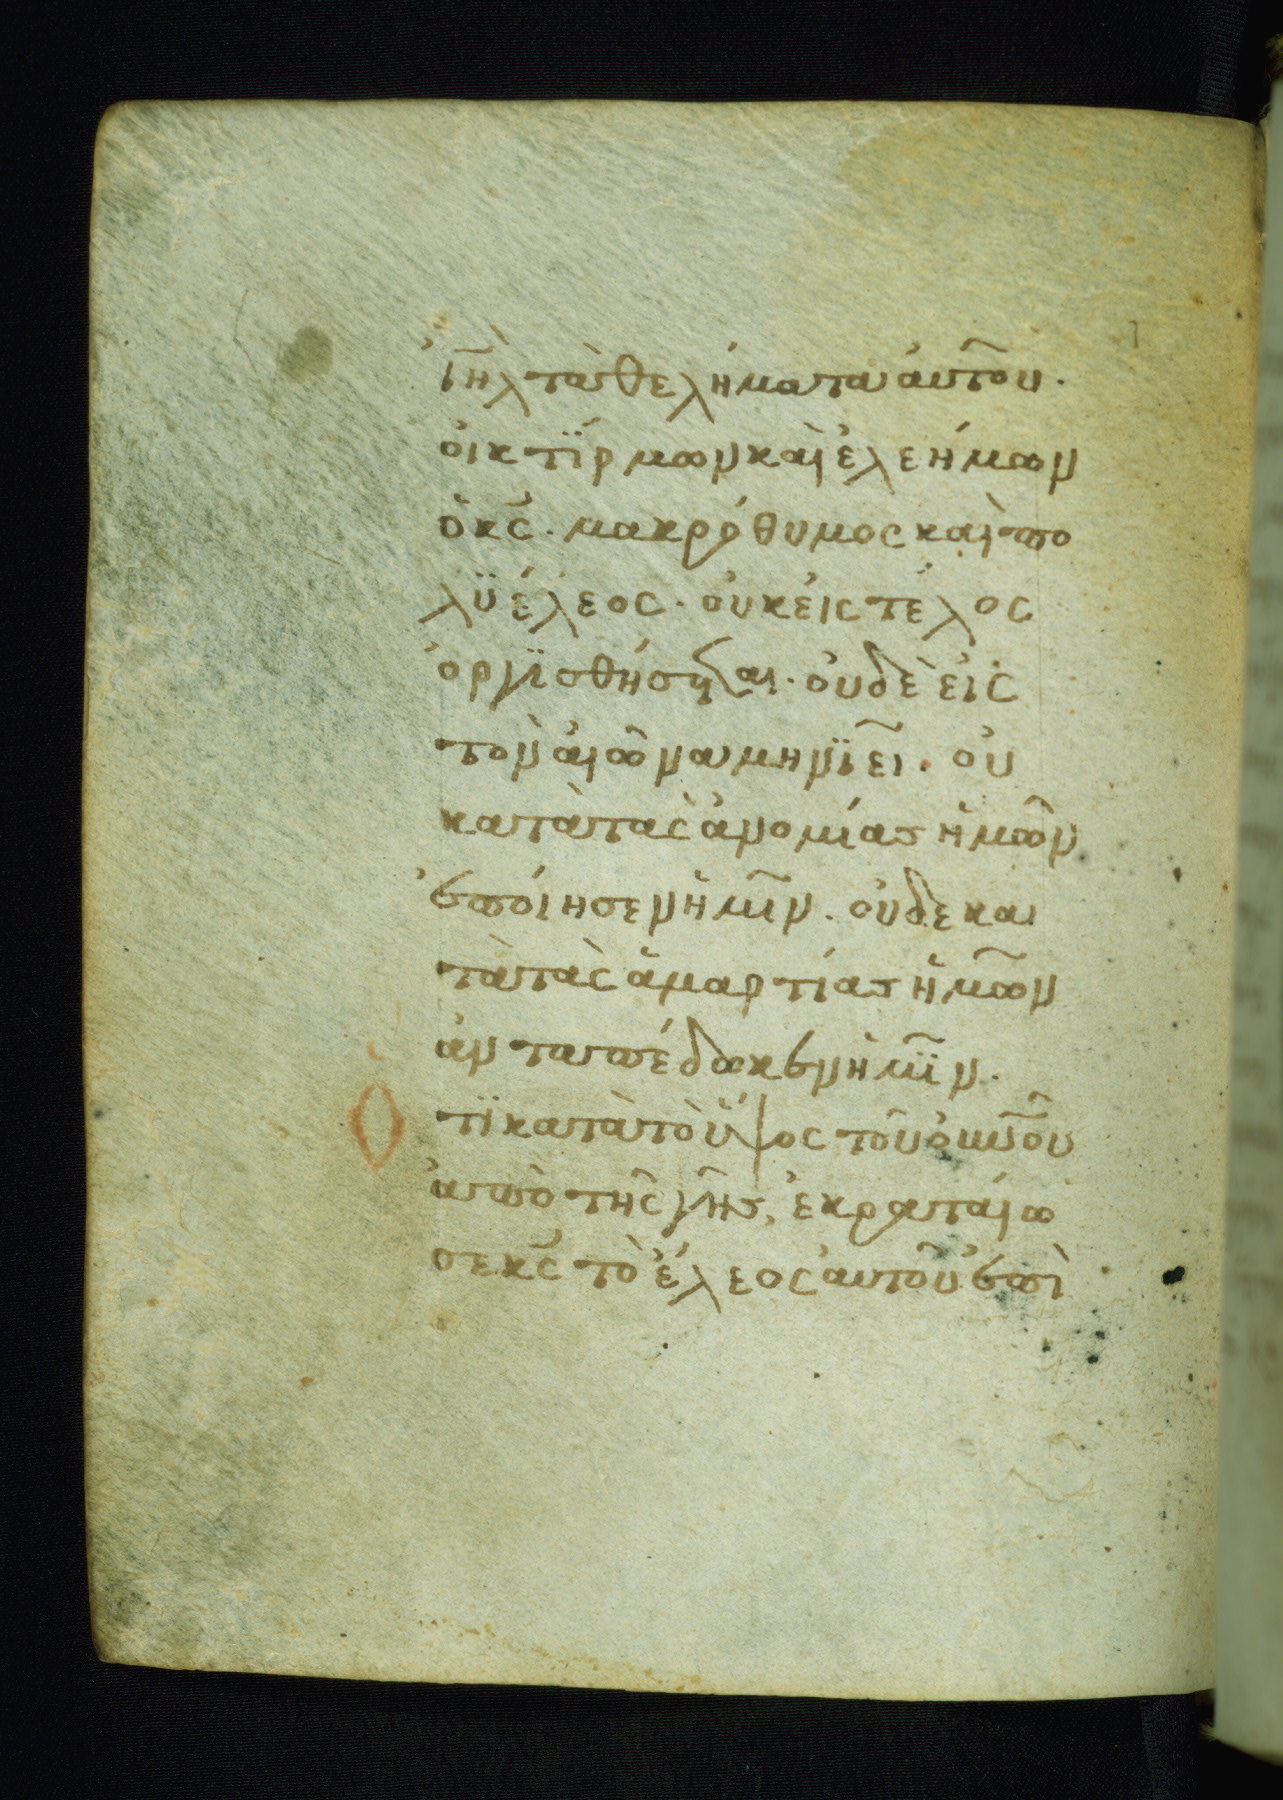 ἰη̅λ τὰ θελήματα ἀυτοῦ·
ὀικτΐρμων καὶ ἐλεήμων
ὁ κ̅ς· μακρόθυμος καὶ πο
λϋέλεος· ὀυκ ἐις τέλος
ὀργϊσθήσεται· ὀυδὲ ἐις
τὸν ἀιῶνα μηνϊεῖ· ὀυ
κατὰ τὰς ἀνομίας ἡμῶν
ἐποίησεν ἡμῖν· ὀυδὲ κα
τὰ τὰς ἁμαρτίας ἡμῶν
ἀνταπέδωκεν ἡμῖν·
Ὁτϊ κατὰ τὸ ὕψος τοῦ ὀυ̅ν̅οῦ
ἀπὸ τῆς γῆς, ἐκραταίω
σε κ̅ς τὸ ἔλεος ἀυτοῦ ἐπὶ